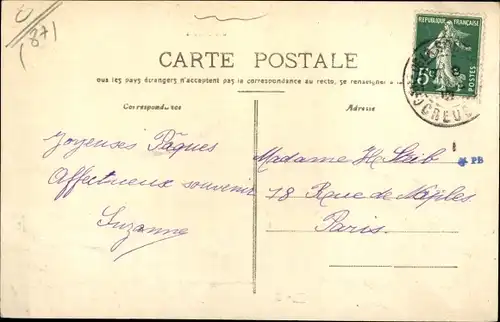 (87)
RÉPUBLIQUE FRANÇAISE
5c
POSTES
CREUSE
CARTE POSTALE
Tous les pays étrangers n'acceptent pas la correspondance au recto, se renseigner
Correspondance
Adresse
Joyeuses Pâques
Affectueux souvenir
Suzanne
Madame H. Staib
78 Rue de Naples
Paris.
PB